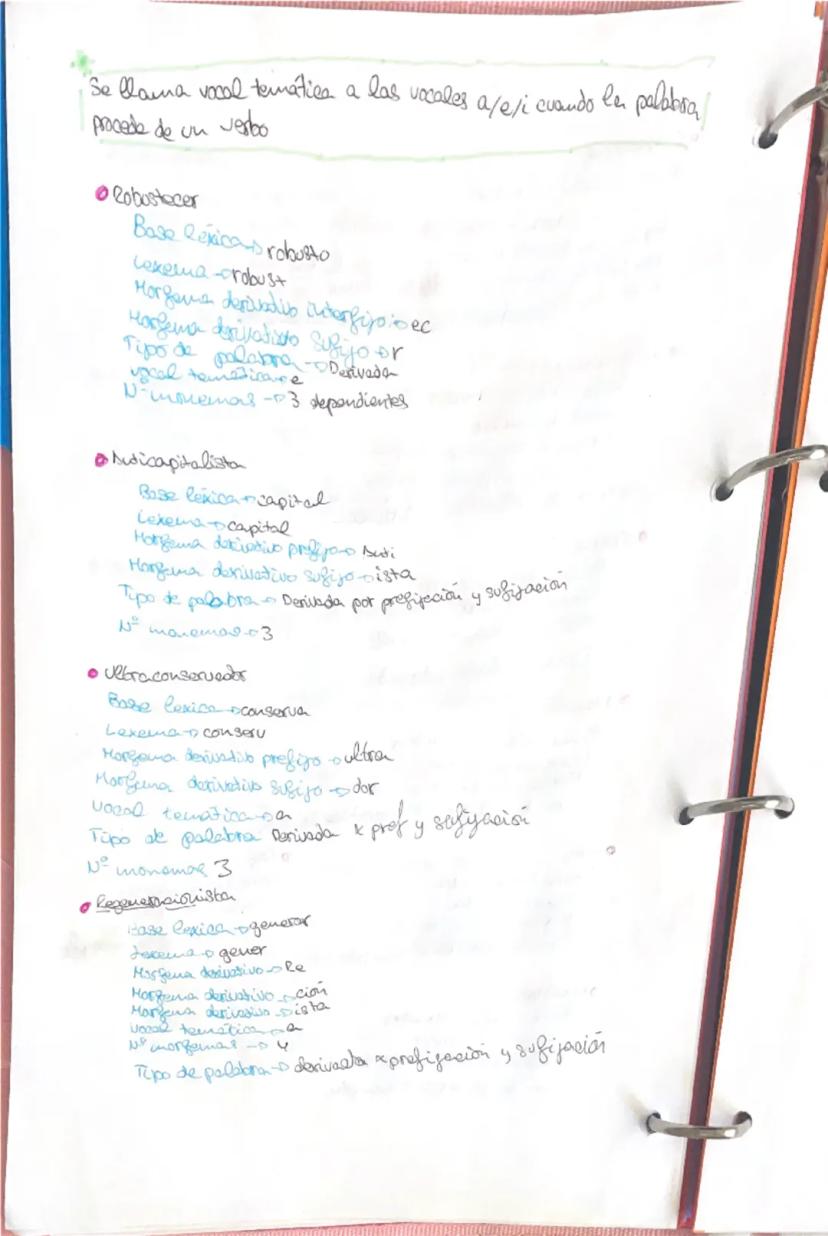 Se llama vocal temática a las vocales a/e/i cuando la palabra
procede de un verbo
Robustecer
Base léxica → robusto
Lexema → robust
Morfema derivativo interfijo → ec
Morfema derivativo sufijo → r
Tipo de palabra → Derivada
vocal temática → e
Nº monemas → 3 dependientes
Anticapitalista
Base léxica → capital
Lexema → capital
Morfema derivativo prefijo → Anti
Morfema derivativo sufijo → ista
Tipo de palabra → Derivada por prefijación y sufijación
Nº monemas → 3
Ultraconservador
Base léxica → conserva
Lexema → conserv
Morfema derivativo prefijo → ultra
Morfema derivativo sufijo → dor
Vocal temática → a
Tipo de palabra Derivada x pref y sufijación
Nº monemas 3
Regeneracionista
Base léxica → generar
Lexema → gener
Morfema derivativo → Re
Morfema derivativo → ción
Morfema derivativo → ista
Vocal temática → a
Nº morfemas → 4
Tipo de palabra → derivada x prefijación y sufijación